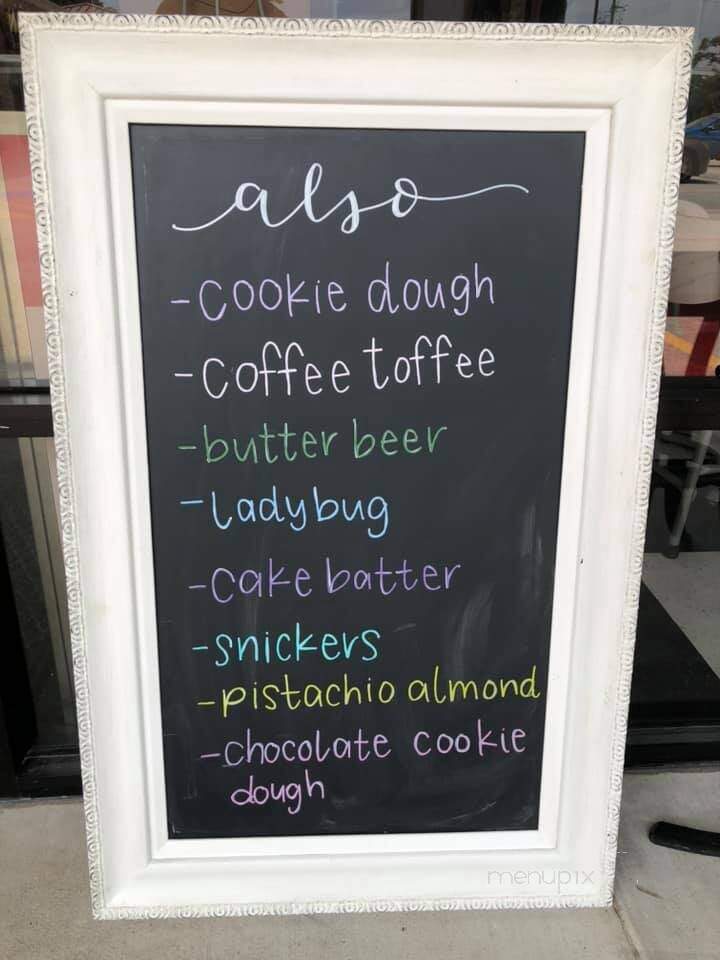 also
-cookie dough
-coffee toffee
-butter beer
-ladybug
-cake batter
-snickers
-pistachio almond
-chocolate cookie
dough
menupix